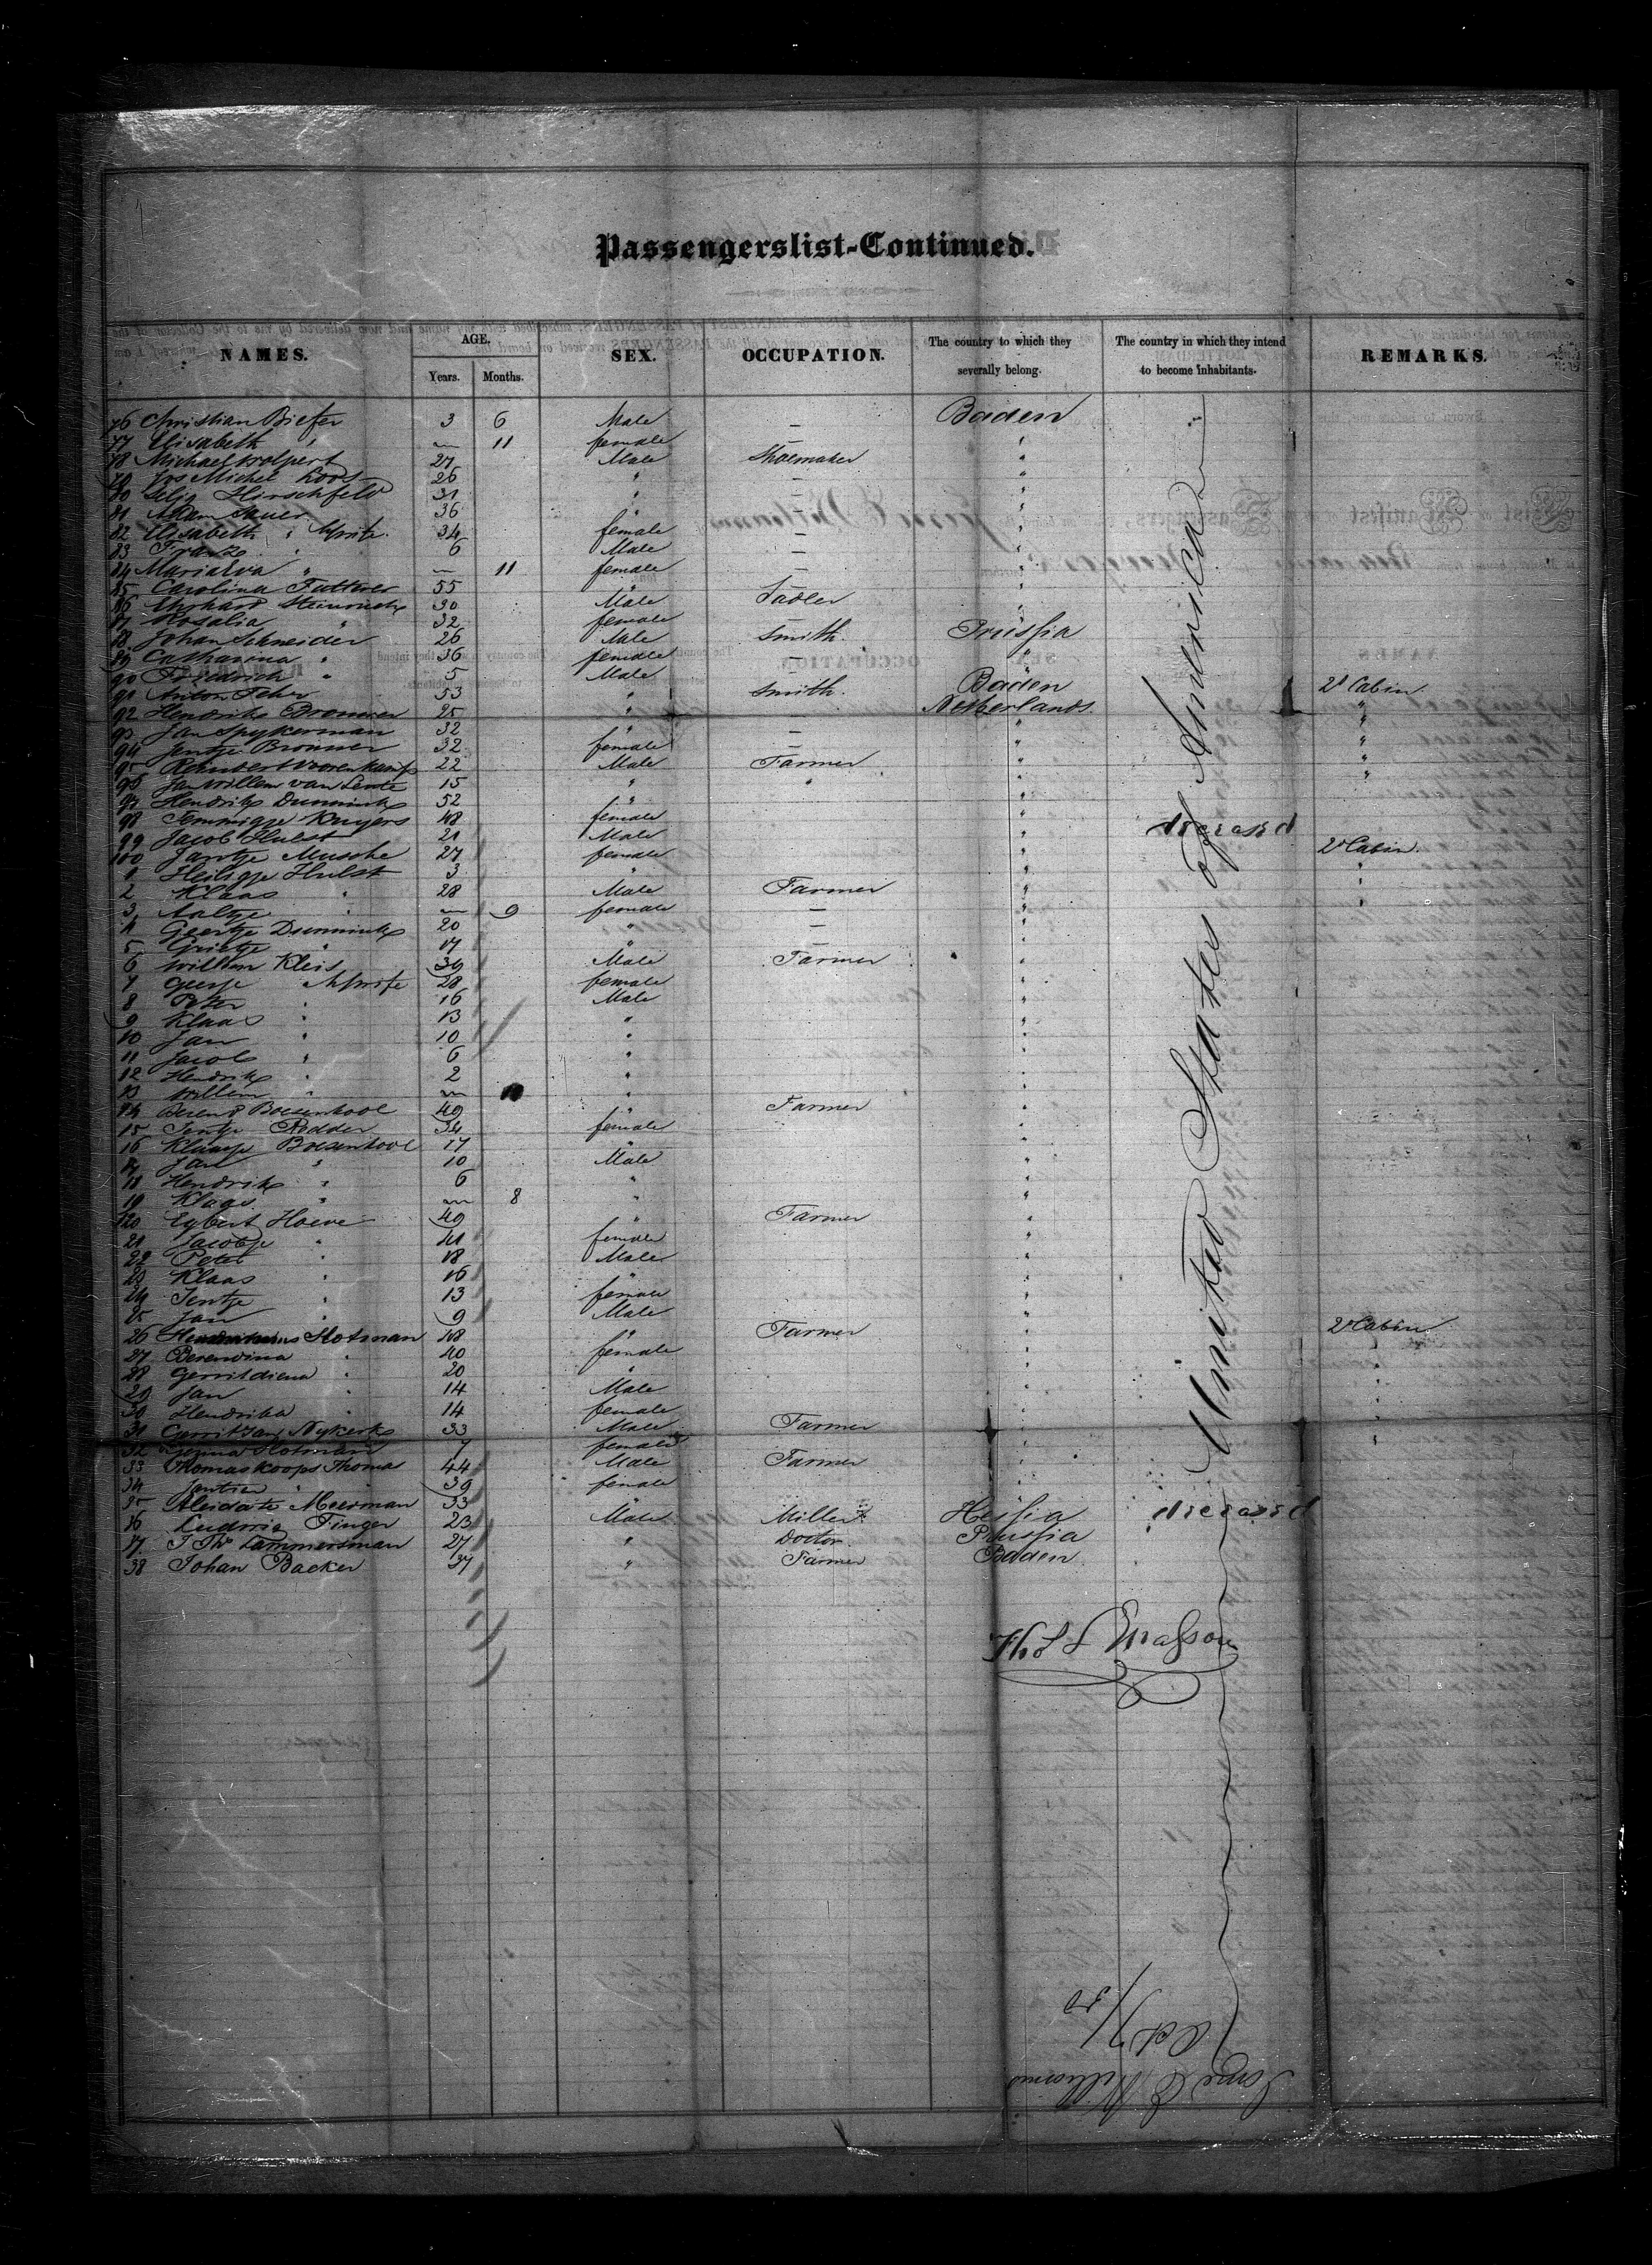 Passengerslist-Continued.
NAMES. AGE. SEX. OCCUPATION. The country to which they severally belong. The country in which they intend to become inhabitants. REMARKS.
Years. Months.
76 Christian Biefer 3 6 Male — Baden "
77 Elisabeth " — 11 female — "
78 Michael Wolpert 27 Male Shoemaker "
79 Jos Michel Loos 26 " — "
80 Selig Hirschfeld 31 " — "
81 Adam Auer 36 " — "
82 Elisabeth " 34 female — "
83 Frantz " 6 Male — "
84 Maria Eva " — 11 female — "
85 Carolina Futterer 55 " — "
86 Heinrich 30 Male Sadler "
87 Rosalia " 32 female — "
88 Johan Schneider 26 Male Smith. Prussia
89 Catharina " 36 female — "
90 Friedrich " 5 Male — "
91 Anton Fehr 53 " Smith. Baden 2d Cabin
92 Hendrik Brouwer 25 " — Netherlands "
93 Jan Spykerman 32 " — " "
94 Jentje Brouwer 32 female — " "
95 Reindert Woorenkamp 22 Male Farmer " "
96 Jan Willem van Lente 15 " " " "
97 Hendrik Dunnink 52 " "
98 Jemmigje Kuyers 48 female "
99 Jacob Hulst 21 Male " deceased
100 Jantje Mussche 27 female " 2d Cabin
1 Heiligje Hulst 3 " " "
2 Klaas " 28 Male Farmer " "
3 Aaltje " — 9 female — " "
4 Geertje Dunnink 20 " — "
5 Grietje " 17 " — "
6 Willem Kleis 39 Male Farmer "
7 Geesje " 28 female "
8 Peter " 16 Male "
9 Klaas " 13 " "
10 Jan " 10 " "
11 Jacob " 6 " "
12 Hendrik " 2 " "
13 Willem " — 10 " "
14 Berend Boesenkool 49 " Farmer "
15 Jentje Redder 34 female "
16 Klaasje Boesenkool 17 " "
17 Jan " 10 Male "
18 Hendrik " 6 " "
19 Klaas " — 8 " "
120 Egbert Hoeve 49 " Farmer "
21 Jacobje " 41 female "
22 Peter " 18 Male "
23 Klaas " 16 " "
24 Jentje " 13 female "
25 Jan " 9 Male "
26 Slotman 48 " Farmer " 2d Cabin
27 Berendina " 40 female " "
28 Gerritdiena " 20 " " "
29 Jan " 14 Male " "
30 Hendrika " 14 female " "
31 Gerrit Jan Nykerk 33 Male Farmer " "
32 Slotman 7 female "
33 Thomas Koops Thoma 44 Male Farmer "
34 Jantien " 39 female "
35 Aleida te Meerman 33 " "
36 Ludwig Finger 23 Male Miller Hessia deceased
37 J Th Lammersman 27 " Doctor. Prussia
38 Johan Backer 37 " Farmer Baden
United States of America
Oct 7/50